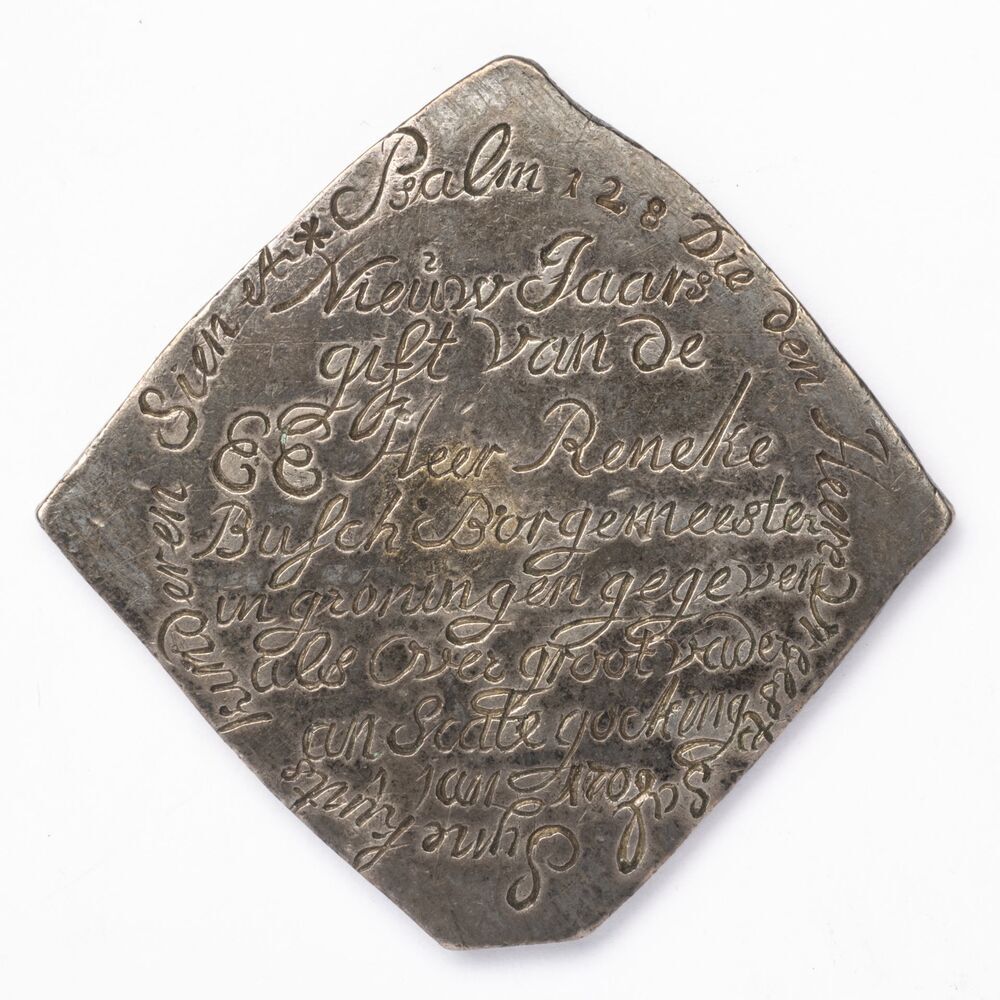 * Psalm 128 Die den Heere Vreest Sal Syne kints kinderen Sien &
Nieuw Jaars
gift van de
EE Heer Reneke
Buſch Borgemeester
in groningen gegeven
als Over groot vader
an Scate gocking
1 Jan